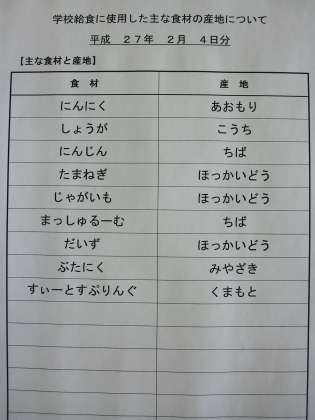 学校給食に使用した主な食材の産地について
平成　２７年　２月　４日分
【主な食材と産地】
食　材　産　地
にんにく　あおもり
しょうが　こうち
にんじん　ちば
たまねぎ　ほっかいどう
じゃがいも　ほっかいどう
まっしゅるーむ　ちば
だいず　ほっかいどう
ぶたにく　みやざき
すぃーとすぷりんぐ　くまもと